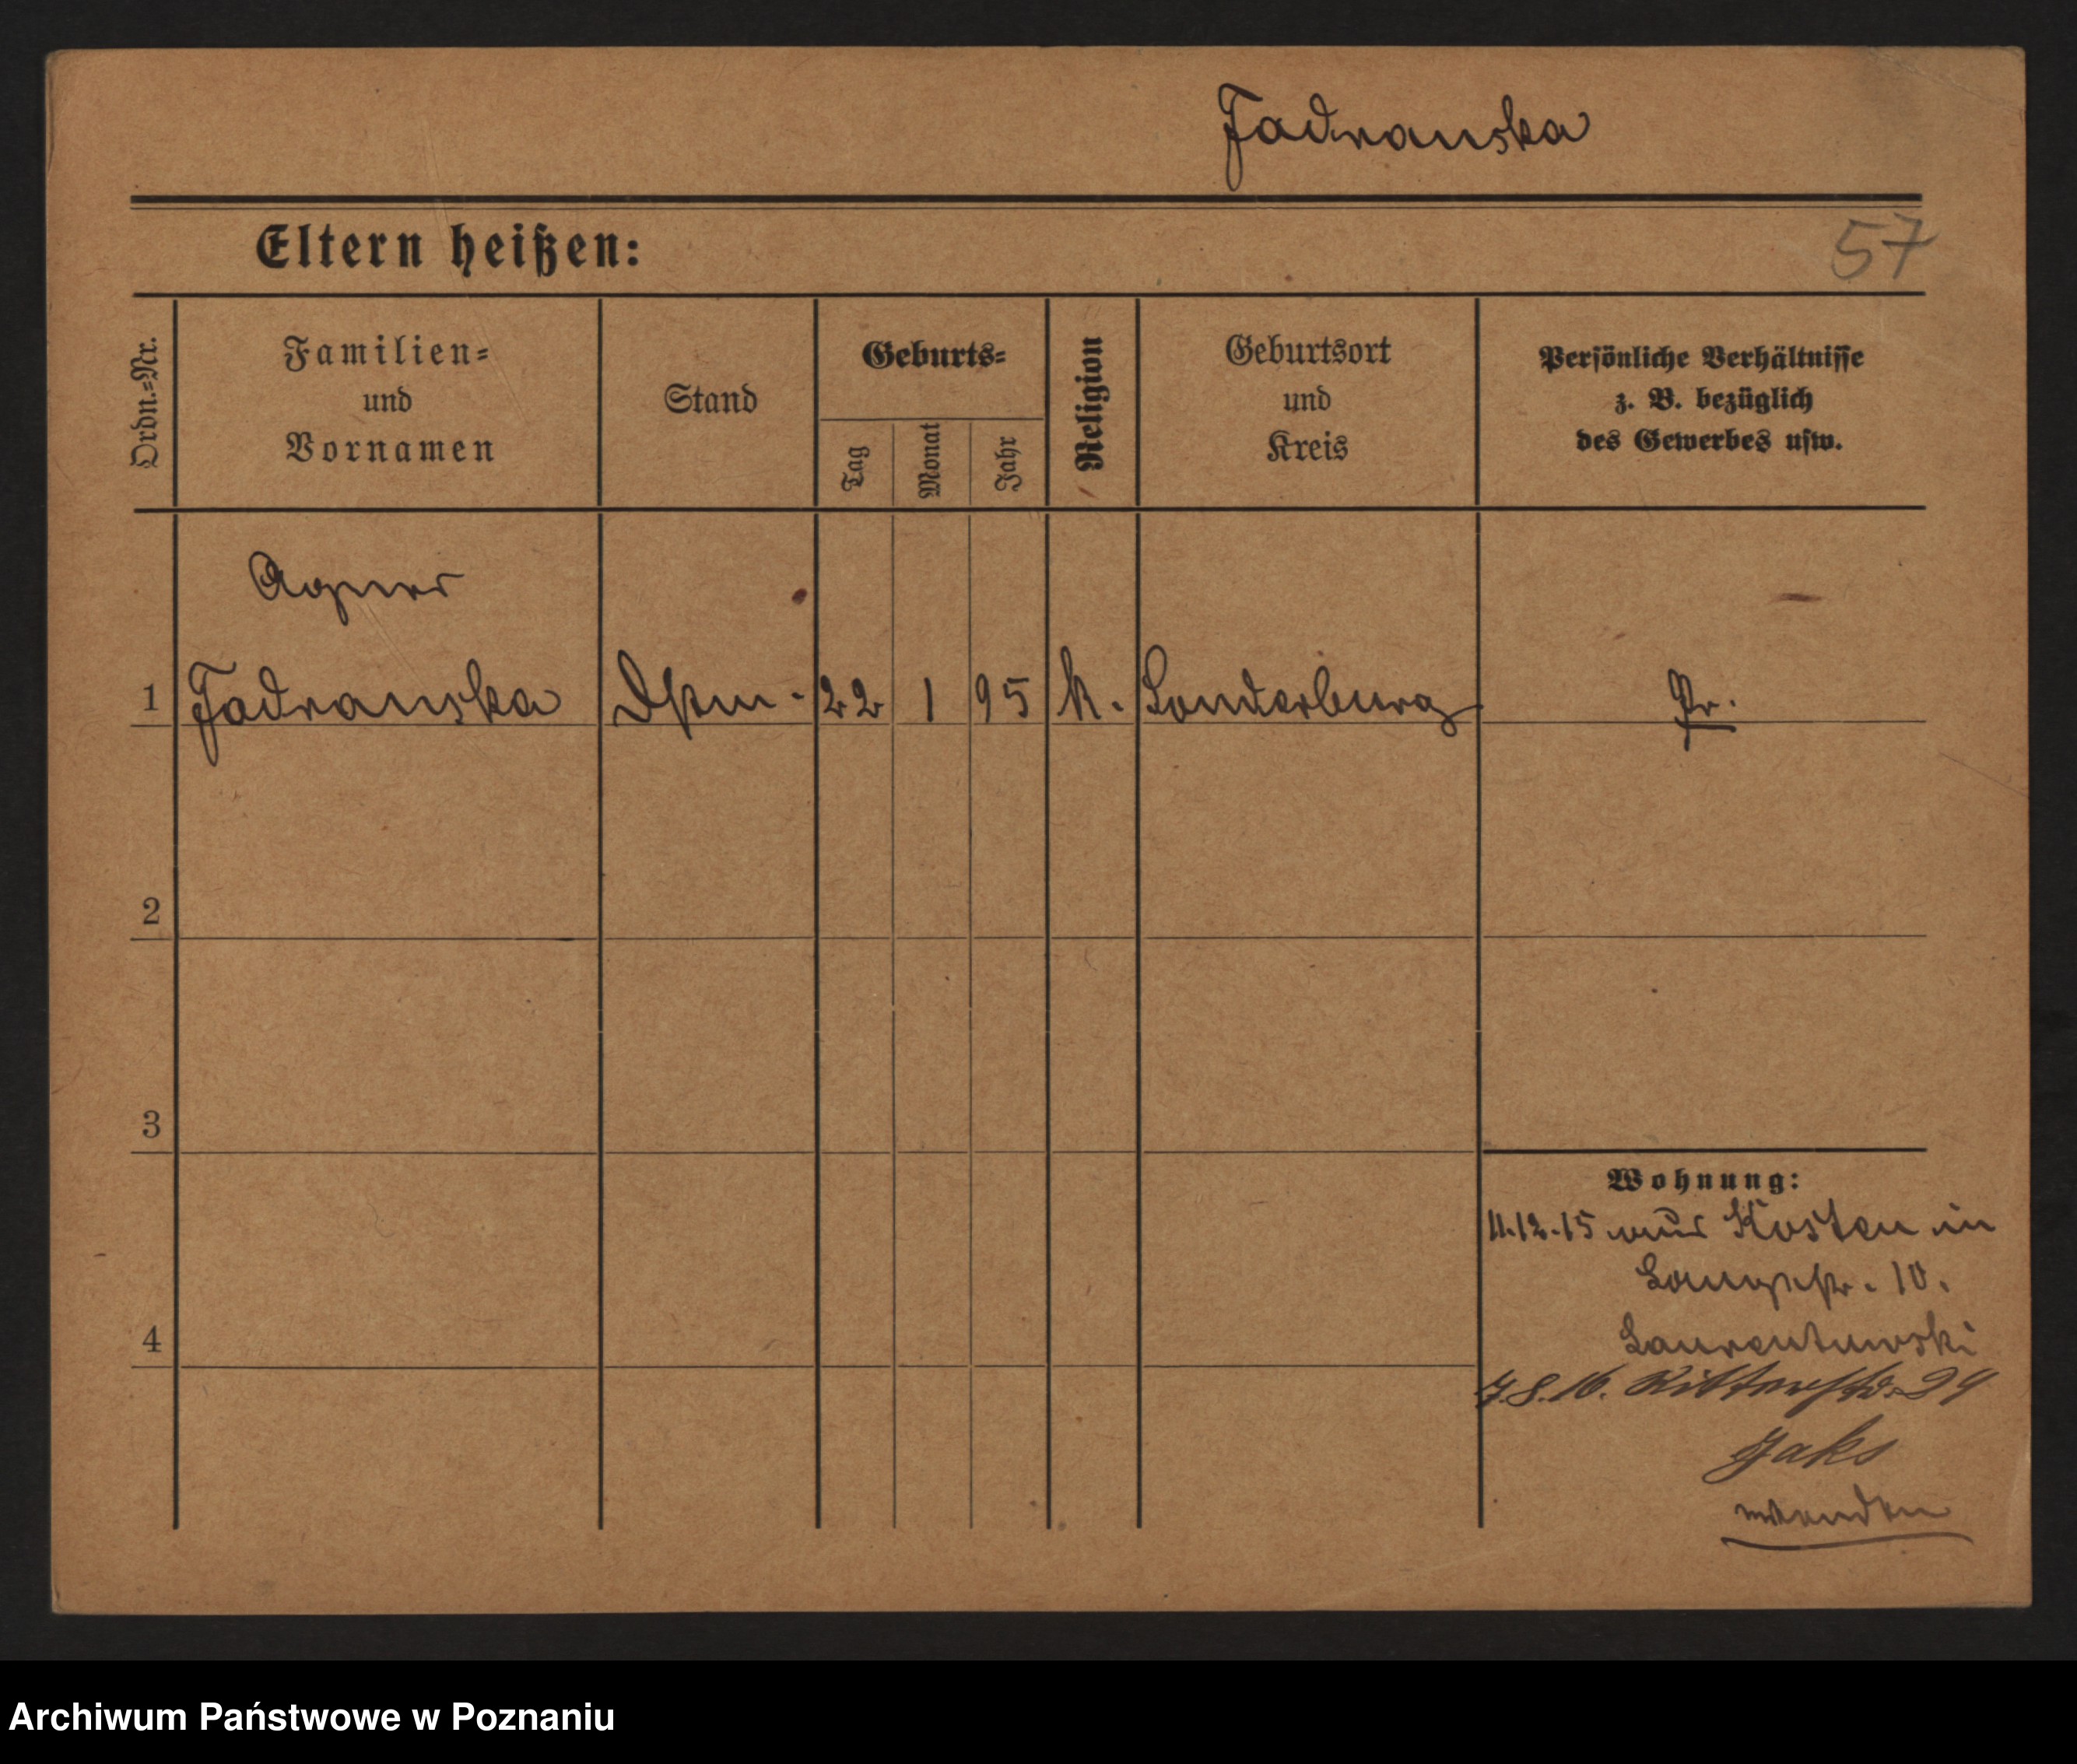 Jadranska
Eltern heißen:
57
Ordn.=Nr.
Familien=
und
Vornamen
Stand
Geburts=
Tag
Monat
Jahr
Religion
Geburtsort
und
Kreis
Persönliche Verhältnisse
z. B. bezüglich
des Gewerbes usw.
Agnes
1 Jadranska 22 1 95 k. Sonderburg Pr.
2
3
Wohnung:
11.12.15 aus Kosten in
Langestr. 10.
4
7.8.16. Ritterstr. 29
Jaks
Archiwum Państwowe w Poznaniu